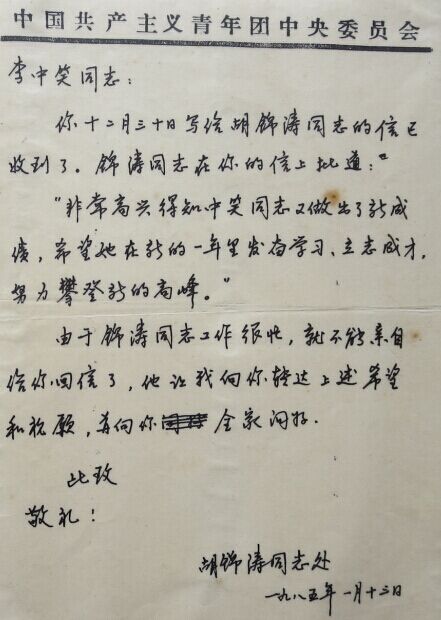 中国共产主义青年团中央委员会
李中笑同志：
你十二月三十日写给胡锦涛同志的信已
收到了。锦涛同志在你的信上批道："
"非常高兴得知中笑同志又做出了新成
绩，希望她在新的一年里发奋学习、立志成才，
努力攀登新的高峰。"
由于锦涛同志工作很忙，就不能亲自
给你回信了，他让我向你转达上述希望
和祝愿，并向你全家问好.
此致
敬礼！
胡锦涛同志处
一九八五年一月十三日